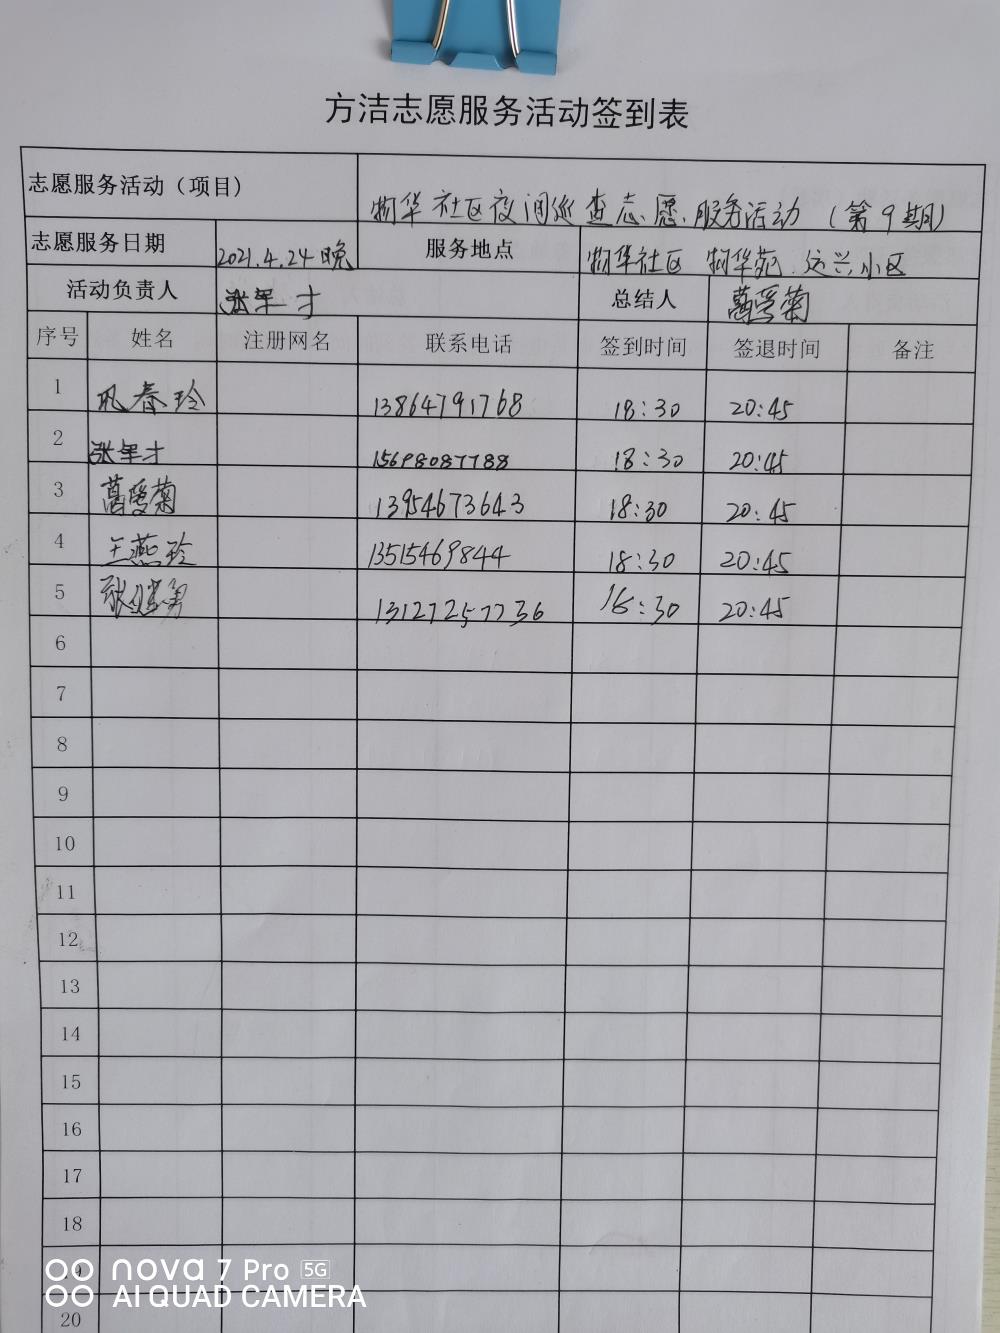 方洁志愿服务活动签到表
志愿服务活动（项目） 物华社区夜间巡查志愿服务活动（第9期）
志愿服务日期 2021.4.24晚 服务地点 物华社区 物华苑.远兴小区
活动负责人 张军才 总结人 葛爱菊
序号 姓名 注册网名 联系电话 签到时间 签退时间 备注
1 巩春玲 13864791768 18:30 20:45
2 张军才 15698087788 18:30 20:45
3 葛爱菊 13954673643 18:30 20:45
4 王燕玲 13515469844 18:30 20:45
5 张 勇 13127257736 18:30 20:45
6
7
8
9
10
11
12
13
14
15
16
17
18
19
20
nova 7 Pro 5G
AI QUAD CAMERA